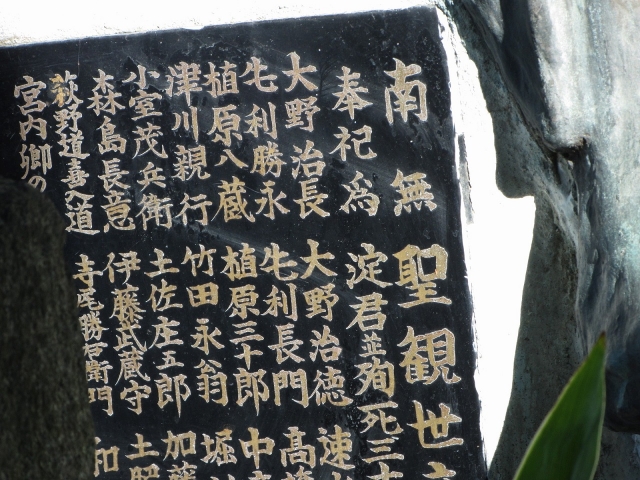 南無聖観世
奉祀為淀君並殉死三
大野治長 大野治徳 速
毛利勝永 毛利長門 高
植原八蔵 植原三十郎 中
津川親行 竹田永翁 堀
小室茂兵衛 土佐庄五郎 加藤
森島長意 伊藤武蔵守 土
萩野道喜入道 寺尾勝右衛門 和
宮内卿の